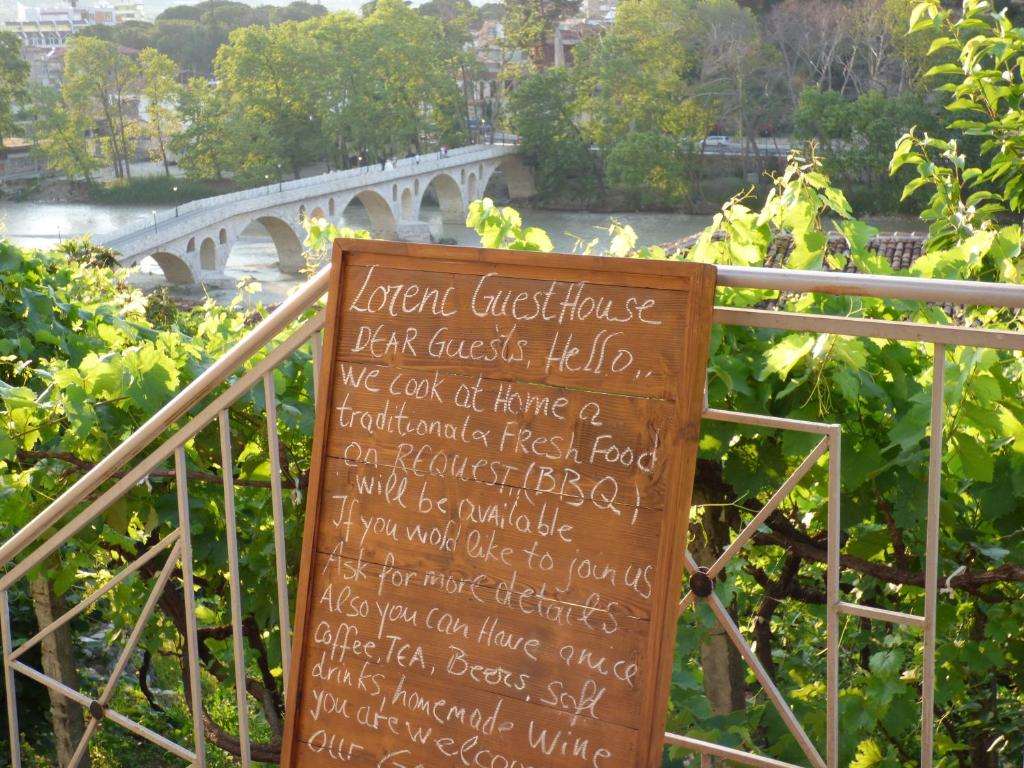 Lorenc GuestHouse
DEAR Guests, Hello,,
we cook at Home a
traditional & FResH Food
on REQUEST, (BBQ)
will be available
If you wold like to join us
Ask for more details
Also you can Have a nice
coffee, TEA, Beers, Soft
drinks, homemade Wine
you are welcome
our